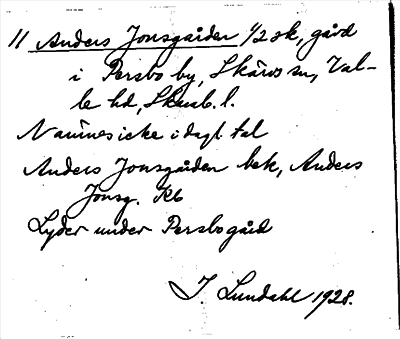 11 Anders Jonsgården 1/2 sk, gård
i Persbo by, Skärvs sn, Val-
le hd, Skarab. l.
Namnes icke i dagl. tal
Anders Jonsgården bek, Anders
Jonsg. Kb
Lyder under Persbogård
I. Lundahl 1928.